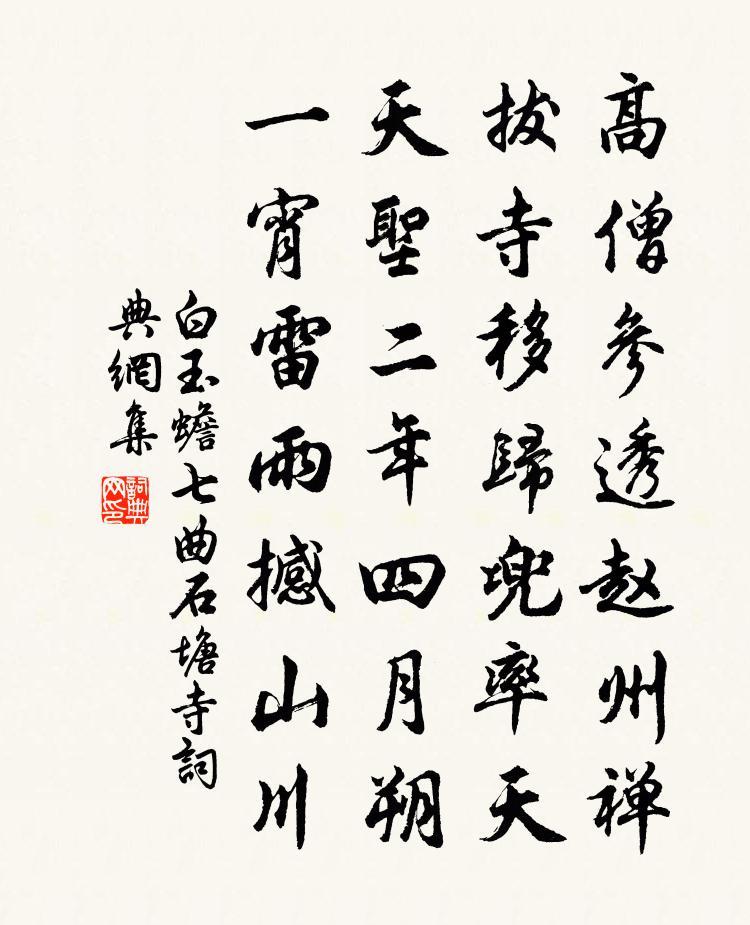 高僧參透赵州禅
拔寺移歸兜率天
天聖二年四月朔
一宵雷雨撼山川
白玉蟾七曲石塘寺詞
典網集
詞典
网印